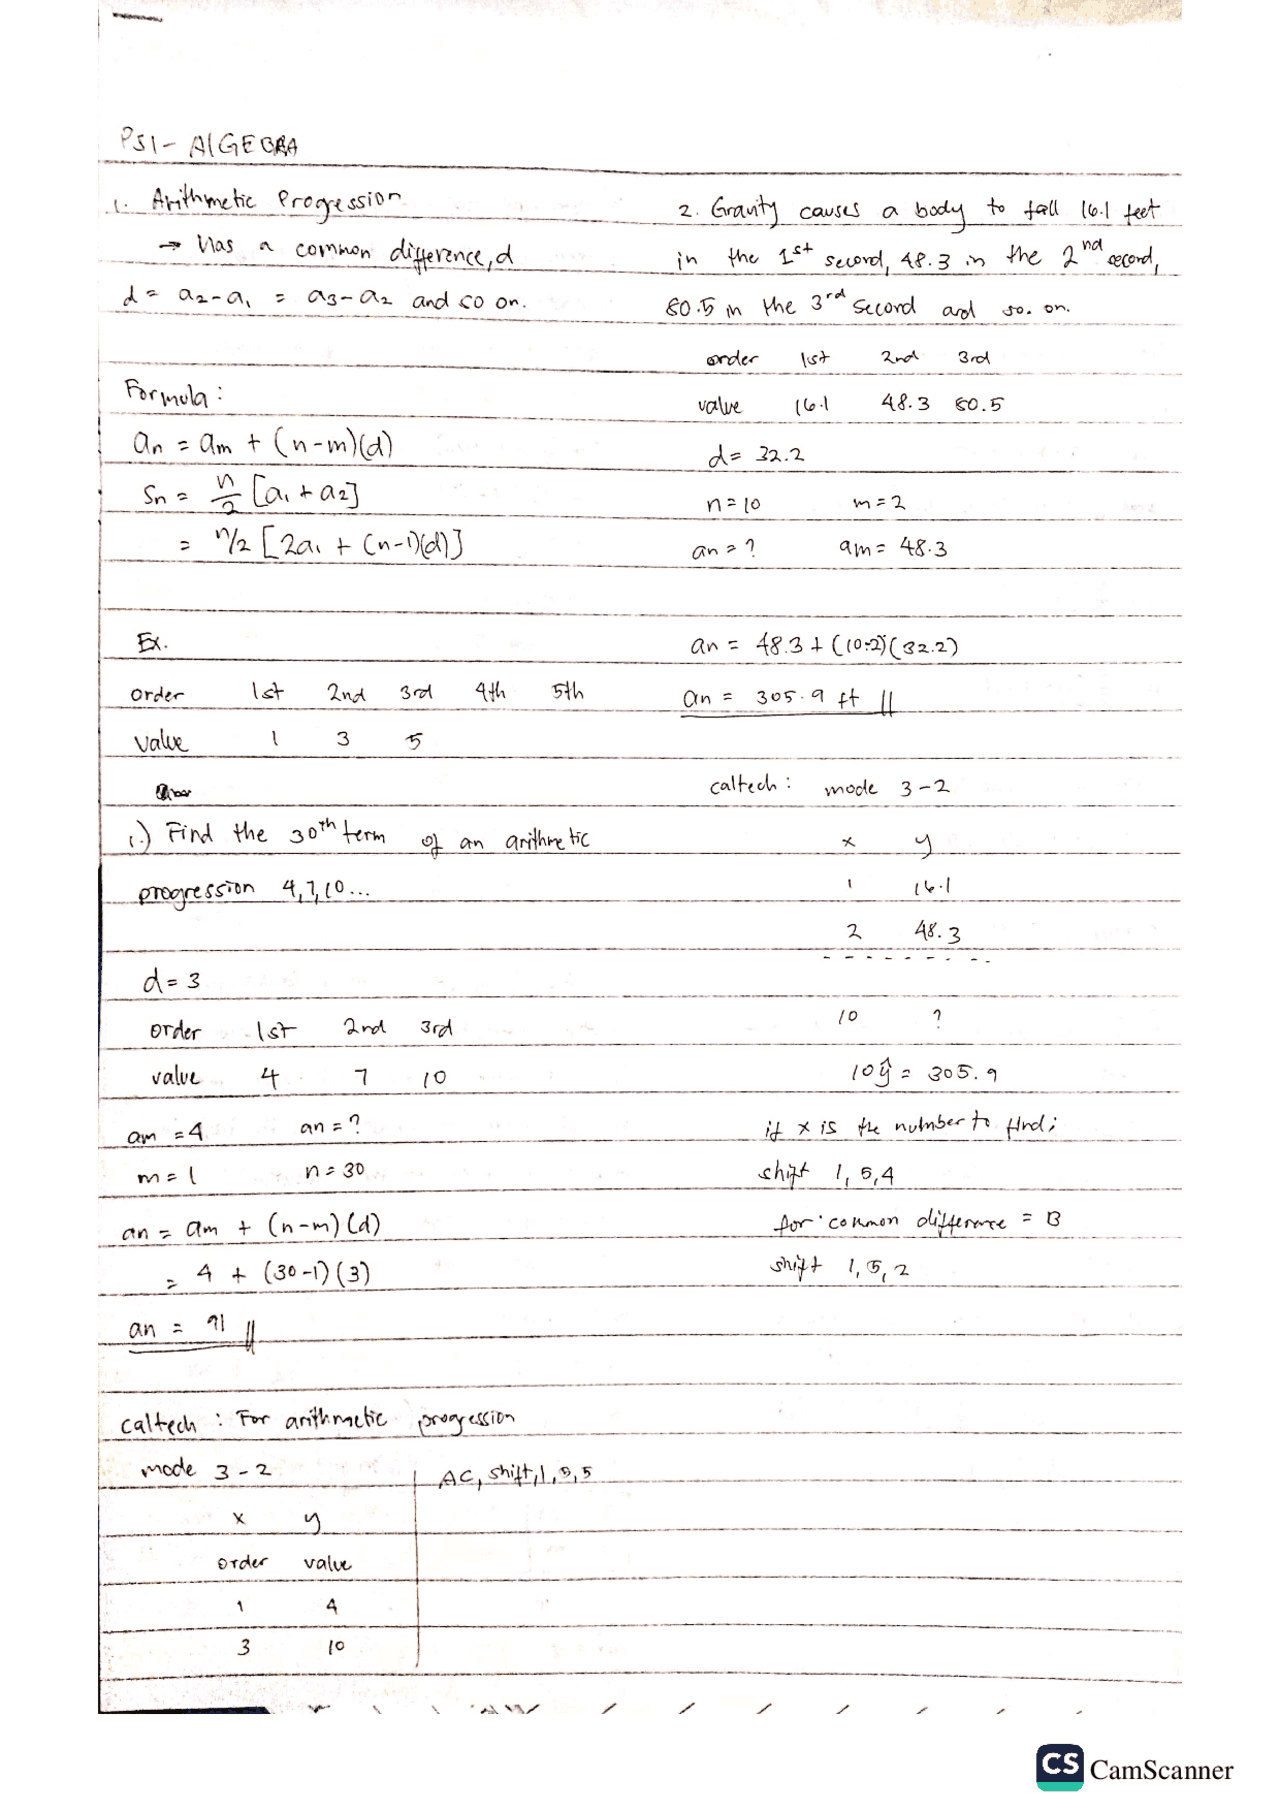 PSI - AlGEBRA
1. Arithmetic Progression
→ Has a common difference, d
d = a2-a1 = a3-a2 and so on.
Formula :
an = am + (n-m)(d)
Sn = n/2 [a1 + a2]
= n/2 [2a1 + (n-1)(d)]
Ex.
order 1st 2nd 3rd 4th 5th
value 1 3 5
1.) Find the 30th term of an arithmetic
progression 4,7,10...
d = 3
order 1st 2nd 3rd
value 4 7 10
am = 4 an = ?
m = 1 n = 30
an = am + (n-m)(d)
= 4 + (30-1)(3)
an = 91 //
caltech : For arithmetic progression
mode 3-2 AC, shift, 1, 5, 5
x y
order value
1 4
3 10
2. Gravity causes a body to fall 16.1 feet
in the 1st second, 48.3 in the 2nd second,
80.5 in the 3rd second and so. on.
order 1st 2nd 3rd
value 16.1 48.3 80.5
d = 32.2
n = 10 m = 2
an = ? am = 48.3
an = 48.3 + (10-2)(32.2)
an = 305.9 ft //
caltech : mode 3-2
x y
1 16.1
2 48.3
10 ?
10ŷ = 305.9
if x is the number to find;
shift 1, 5, 4
for common difference = B
shift 1, 5, 2
CS CamScanner